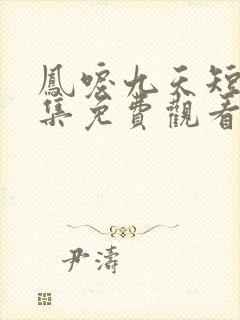 鳳唳九天短
集免費觀看
尹濤